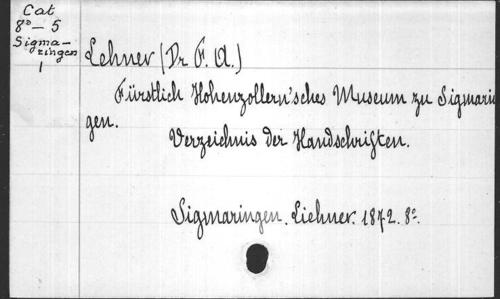 Cat
8º — 5
Sigma-
ringen
1
Lehner (Dr F. A.)
Fürstlich Hohenzollern'sches Museum zu Sigmarin
gen.
Verzeichnis der Handschriften.
Sigmaringen. Liehner. 1872. 8º.